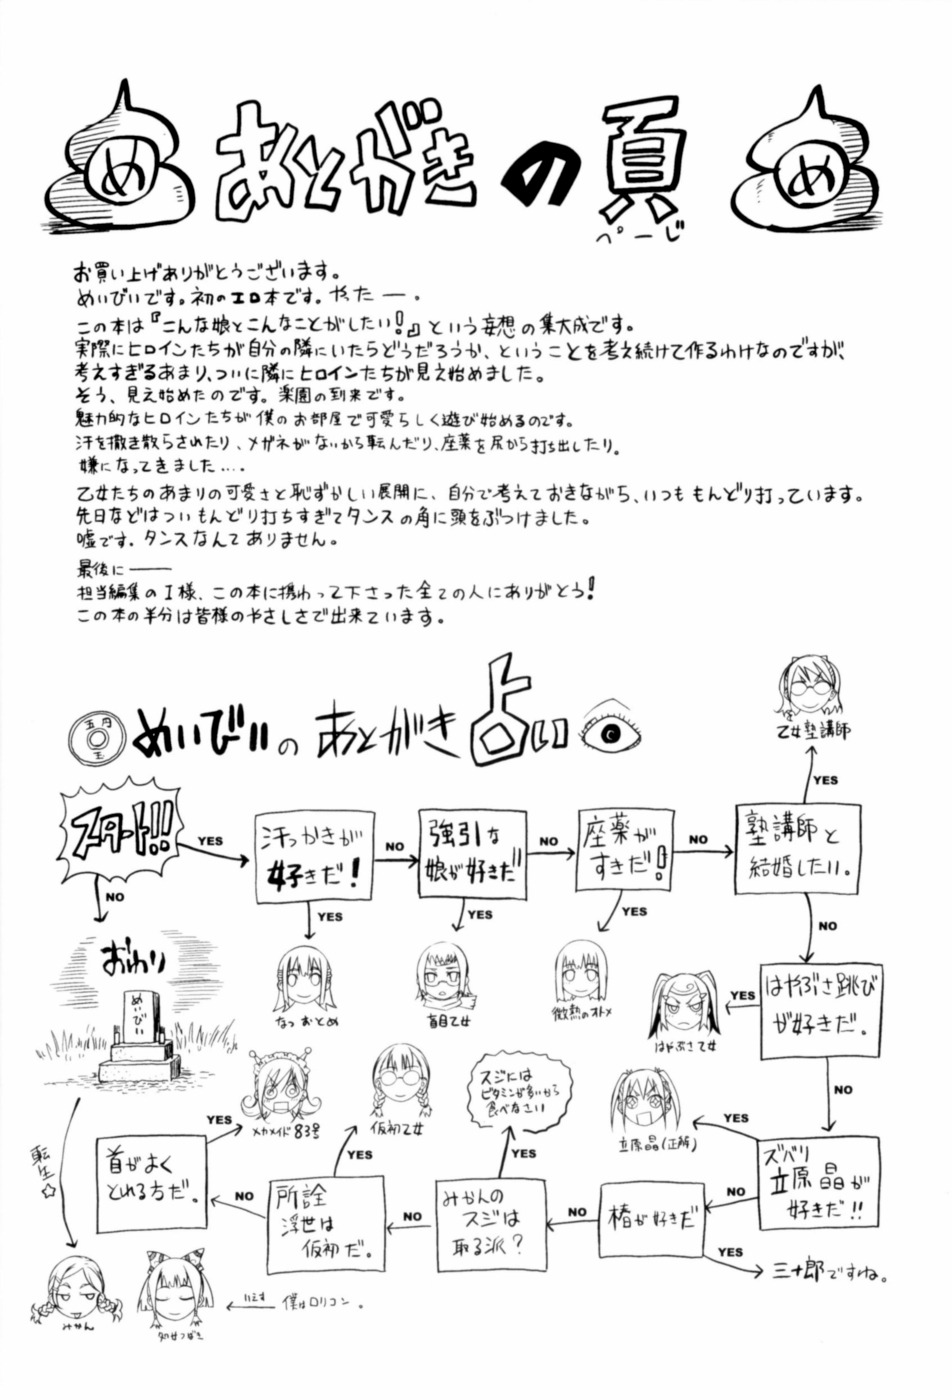 め
あとがきの頁
ぺーじ
め
お買い上げありがとうございます。
めいびいです。初のエロ本です。やったー。
この本は『こんな娘とこんなことがしたい!』という妄想の集大成です。
実際にヒロインたちが自分の隣にいたらどうだろうか、ということを考え続けて作るわけなのですが、
考えすぎるあまり、ついに隣にヒロインたちが見え始めました。
そう、見え始めたのです。楽園の到来です。
魅力的なヒロインたちが僕のお部屋で可愛らしく遊び始めるのです。
汗を撒き散らされたり、メガネがないから転んだり、座薬を尻から打ち出したり。
嫌になってきました….
乙女たちのあまりの可愛さと恥ずかしい展開に、自分で考えておきながら、いつももんどり打っています。
先日などはついもんどり打ちすぎてタンスの角に頭をぶつけました。
嘘です。タンスなんてありません。
最後に――
担当編集のI様、この本に携わって下さった全ての人にありがとう!
この本の半分は皆様のやさしさで出来ています。
五円
玉
めいびいのあとがき占い
乙女塾講師
YES
スタート!!
YES
汗っかきが
好きだ!
NO
強引な
娘が好きだ
NO
座薬が
すきだ!
NO
塾講師と
結婚したい。
NO
YES
YES
YES
NO
おわり
めいびい
なつおとめ
盲目乙女
微熱のオトメ
はやぶさ乙女
YES
はやぶさ跳び
が好きだ。
NO
メカメイド83号
仮初乙女
スジには
ビタミンが多いから
食べなさい
立原晶(正解)
YES
ズバリ
立原晶が
好きだ!!
NO
椿が好きだ
YES
三十郎ですね。
NO
みかんの
スジは
取る派?
YES
NO
所詮
浮世は
仮初だ。
YES
NO
首がよく
とれる方だ。
YES
転生☆
みかん
幼女つばき
いえす
僕はロリコン。